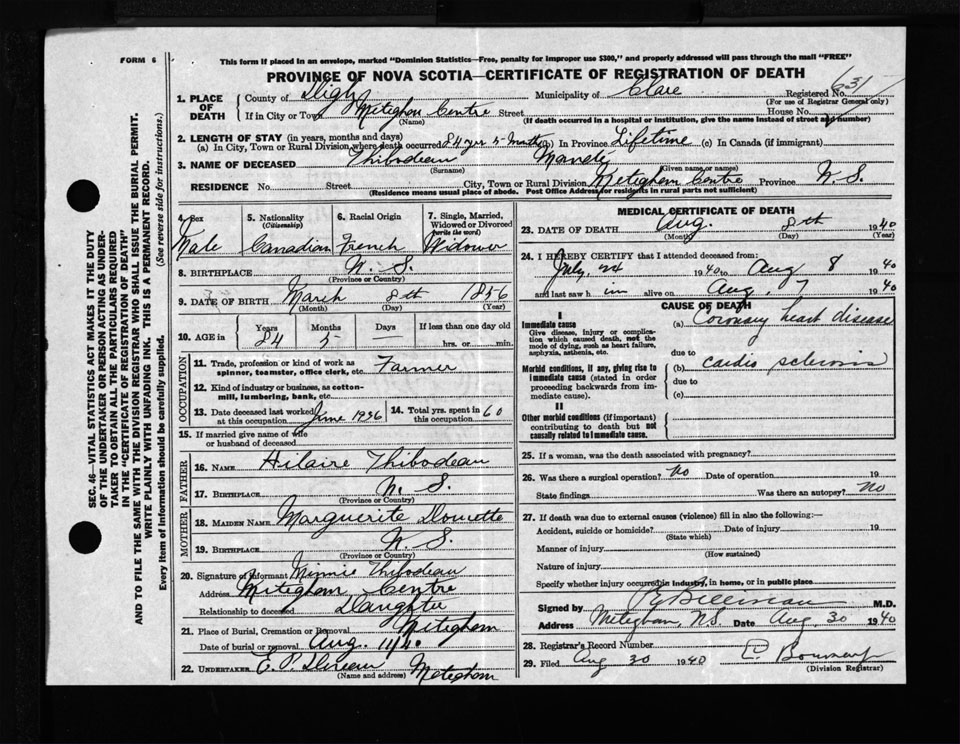 FORM 6
This form if placed in an envelope, marked "Dominion Statistics—Free, penalty for improper use $300," and properly addressed will pass through the mail "FREE"
PROVINCE OF NOVA SCOTIA—CERTIFICATE OF REGISTRATION OF DEATH
1. PLACE OF DEATH
County of Digby Municipality of Clare Registered No.
(For use of Registrar General only)
If in City or Town Meteghan Centre Street House No.
(Name) (If death occurred in a hospital or institution, give the name instead of street and number)
2. LENGTH OF STAY (in years, months and days)
(a) In City, Town or Rural Division where death occurred 84 yrs 5 months (b) In Province Lifetime (c) In Canada (if immigrant)
3. NAME OF DECEASED Thibodeau Mandé
(Surname) (Given name or names)
RESIDENCE No. Street City, Town or Rural Division Meteghan Centre Province N. S.
(Residence means usual place of abode. Post Office Address for residents in rural parts not sufficient)
4. Sex Male
5. Nationality (Citizenship) Canadian
6. Racial Origin French
7. Single, Married, Widowed or Divorced (write the word) Widower
8. BIRTHPLACE N. S.
(Province or Country)
9. DATE OF BIRTH March 8th 1856
(Month) (Day) (Year)
10. AGE in Years 84 Months 5 Days — If less than one day old hrs. or min.
OCCUPATION
11. Trade, profession or kind of work as spinner, teamster, office clerk, etc. Farmer
12. Kind of industry or business, as cotton-mill, lumbering, bank, etc.
13. Date deceased last worked at this occupation June 1936
14. Total yrs. spent in this occupation 60
15. If married give name of wife or husband of deceased
FATHER
16. NAME Hilaire Thibodeau
17. BIRTHPLACE N. S.
(Province or Country)
MOTHER
18. MAIDEN NAME Marguerite Doucette
19. BIRTHPLACE N. S.
(Province or Country)
20. Signature of Informant Minnie Thibodeau
Address Meteghan Centre
Relationship to deceased Daughter
21. Place of Burial, Cremation or Removal Meteghan
Date of burial or removal Aug. 11/40
22. UNDERTAKER E. P. Meteghan
(Name and address)
MEDICAL CERTIFICATE OF DEATH
23. DATE OF DEATH Aug. 8th 1940
(Month) (Day) (Year)
24. I HEREBY CERTIFY that I attended deceased from:
July 1940 to Aug 8 1940
and last saw h im alive on Aug. 7 1940
CAUSE OF DEATH
I
Immediate cause (a) Coronary heart disease
Give disease, injury or complication which caused death, not the mode of dying, such as heart failure, asphyxia, asthenia, etc.
due to
Morbid conditions, if any, giving rise to immediate cause (stated in order proceeding backwards from immediate cause). (b) cardio sclerosis
due to
(c)
II
Other morbid conditions (if important) contributing to death but not causally related to immediate cause.
25. If a woman, was the death associated with pregnancy?
26. Was there a surgical operation? No Date of operation 19
State findings Was there an autopsy? No
27. If death was due to external causes (violence) fill in also the following:—
Accident, suicide or homicide? Date of injury 19
(State which)
Manner of injury
(How sustained)
Nature of injury
Specify whether injury occurred in industry, in home, or in public place
Signed by M.D.
Address Meteghan, N.S. Date Aug. 30 1940
28. Registrar's Record Number
29. Filed Aug 30 1940
(Division Registrar)
SEC. 46—VITAL STATISTICS ACT MAKES IT THE DUTY
OF THE UNDERTAKER OR PERSON ACTING AS UNDER-
TAKER TO OBTAIN ALL THE PARTICULARS REQUIRED
IN THE "CERTIFICATE OF REGISTRATION OF DEATH"
AND TO FILE THE SAME WITH THE DIVISION REGISTRAR WHO SHALL ISSUE THE BURIAL PERMIT.
WRITE PLAINLY WITH UNFADING INK. THIS IS A PERMANENT RECORD.
Every item of information should be carefully supplied. (See reverse side for instructions.)